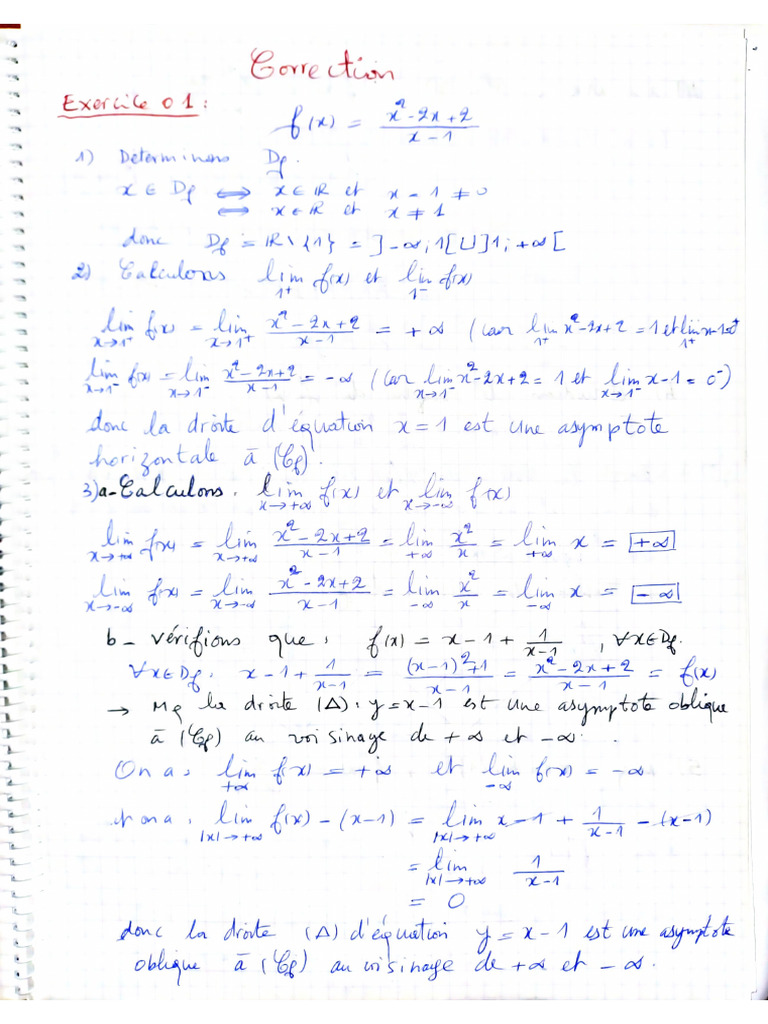 Correction
Exercice 01 :
f(x) = (x²-2x+2)/(x-1)
1) Determinons Df.
x ∈ Df ⟺ x ∈ IR et x - 1 ≠ 0
⟺ x ∈ IR et x ≠ 1
donc Df = IR \ {1} = ]-∞; 1[ U ]1; +∞[
2) Calculons lim_{1⁺} f(x) et lim_{1⁻} f(x)
lim_{x→1⁺} f(x) = lim_{x→1⁺} (x²-2x+2)/(x-1) = +∞ (car lim_{1⁺} x²-2x+2 = 1 et lim_{1⁺} x-1=0⁺
lim_{x→1⁻} f(x) = lim_{x→1⁻} (x²-2x+2)/(x-1) = -∞ (car lim_{x→1⁻} x²-2x+2 = 1 et lim_{x→1⁻} x-1 = 0⁻)
donc la droite d'équation x = 1 est une asymptote
horizontale à (Cf).
3) a- Calculons . lim_{x→+∞} f(x) et lim_{x→-∞} f(x)
lim_{x→+∞} f(x) = lim_{x→+∞} (x²-2x+2)/(x-1) = lim_{+∞} x²/x = lim_{+∞} x = +∞
lim_{x→-∞} f(x) = lim_{x→-∞} (x²-2x+2)/(x-1) = lim_{-∞} x²/x = lim_{-∞} x = -∞
b - vérifions que : f(x) = x-1+ 1/(x-1) , ∀x∈Df.
∀x∈Df : x-1+ 1/(x-1) = ((x-1)²+1)/(x-1) = (x²-2x+2)/(x-1) = f(x)
→ Mq la droite (Δ): y=x-1 est une asymptote oblique
à (Cf) au voisinage de +∞ et -∞.
On a : lim_{+∞} f(x) = +∞ et lim_{-∞} f(x) = -∞
et on a : lim_{|x|→+∞} f(x) - (x-1) = lim_{|x|→+∞} x-1 + 1/(x-1) - (x-1)
= lim_{|x|→+∞} 1/(x-1)
= 0
donc la droite (Δ) d'équation y = x-1 est une asymptote
oblique à (Cf) au voisinage de +∞ et -∞.